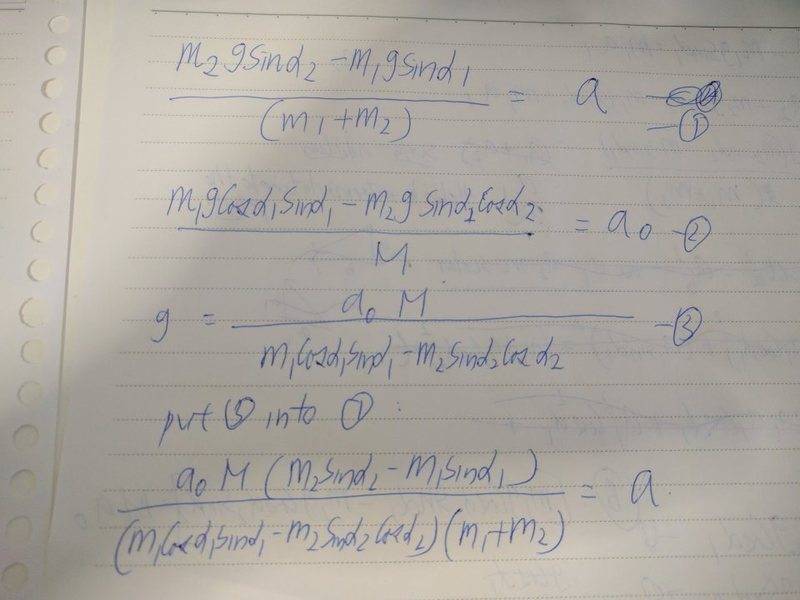 m₂gsinα₂ - m₁gsinα₁
/ (m₁+m₂) = a - ①
m₁gcosα₁sinα₁ - m₂g sinα₂cosα₂
/ M = a₀ - ②
g = a₀ M
/ m₁cosα₁sinα₁ - m₂sinα₂cosα₂ - ③
put ③ into ① :
a₀ M (m₂sinα₂ - m₁sinα₁)
/ (m₁cosα₁sinα₁ - m₂sinα₂cosα₂)(m₁+m₂) = a.